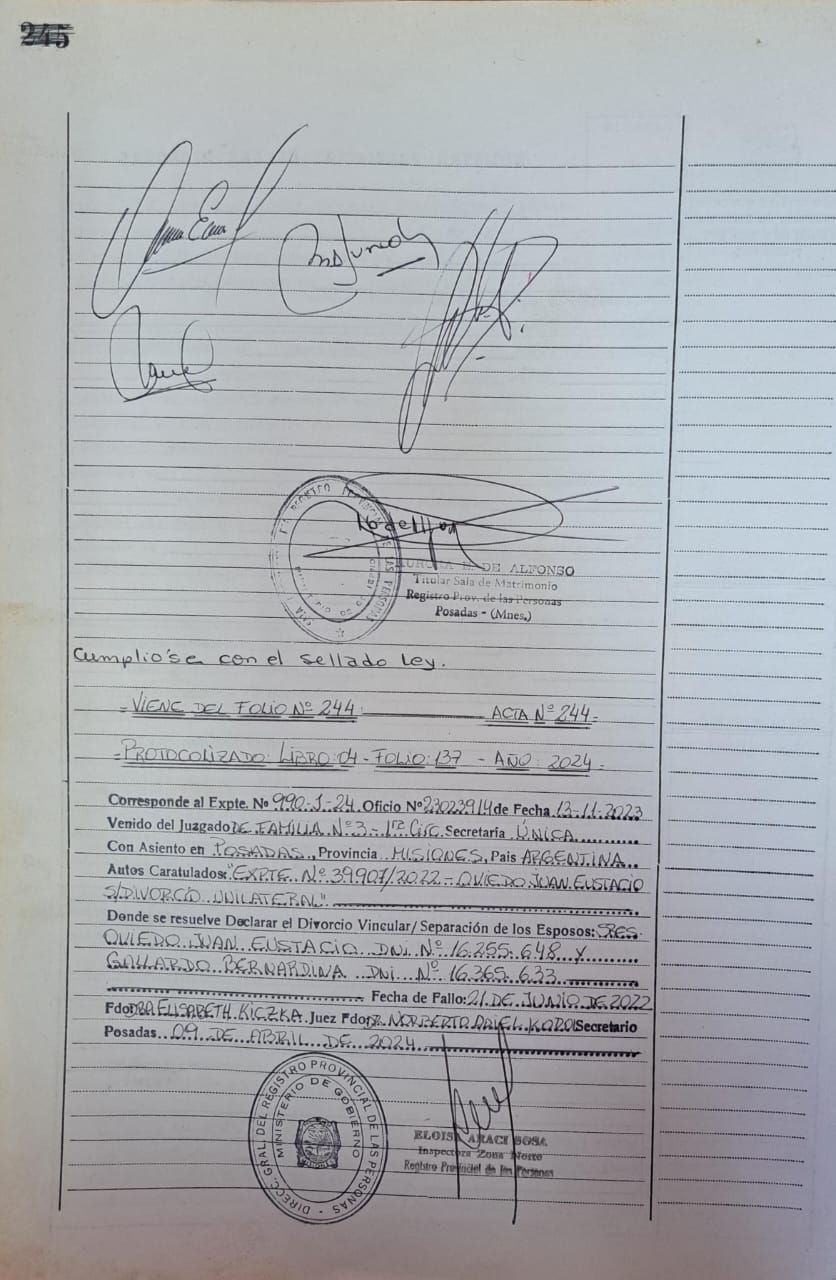 245
REGISTRO
DE LAS PERSONAS
DE ALFONSO
Titular Sala de Matrimonio
Registro Prov. de las Personas
Posadas - (Mnes.)
Cumplió'se con el sellado Ley.
=VIENE DEL FOLIO Nº 244 ACTA Nº 244=
=PROTOCOLIZADO: LIBRO: 04 - FOLIO: 137 - AÑO: 2024=
Corresponde al Expte. Nº 990-J-24 Oficio Nº 23023914 de Fecha 13-11-2023
Venido del Juzgado DE FAMILIA Nº 3 - 1ra Circ. Secretaría ÚNICA
Con Asiento en POSADAS, Provincia MISIONES, Pais ARGENTINA
Autos Caratulados: "EXPTE. Nº 39907/2022 - OVIEDO JUAN EUSTACIO
S/DIVORCIO UNILATERAL"
Donde se resuelve Declarar el Divorcio Vincular/ Separación de los Esposos: SRES.
OVIEDO JUAN EUSTACIO DNI Nº 16.255.648 y
GALLARDO BERNARDINA DNI Nº 16.365.633
Fecha de Fallo: 21 DE JUNIO DE 2022
Fdo: DRA ELISABETH KICZKA Juez Fdo: DR. NORBERTO ARIEL Secretario
Posadas 09 DE ABRIL DE 2024
DIRECC. GRAL. DEL REGISTRO PROVINCIAL DE LAS PERSONAS
MINISTERIO DE GOBIERNO
ELOISA ARACI SOSA
Inspectora Zona Norte
Registro Provincial de las Personas